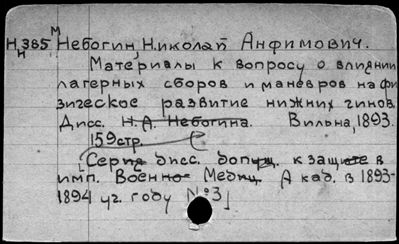 Н 385 М Небогин, Николай Анфимович.
Н
Материалы к вопросу о влиянии
лагерных сборов и маневров на фи
зическое развитие нижних чинов.
Дисс. Н.А. Небогина. Вильна, 1893.
159 стр. (
[Серия дисс. допущ. к защите в
имп. Военно Медиц. Акад. в 1893-
1894 уч. году №3]